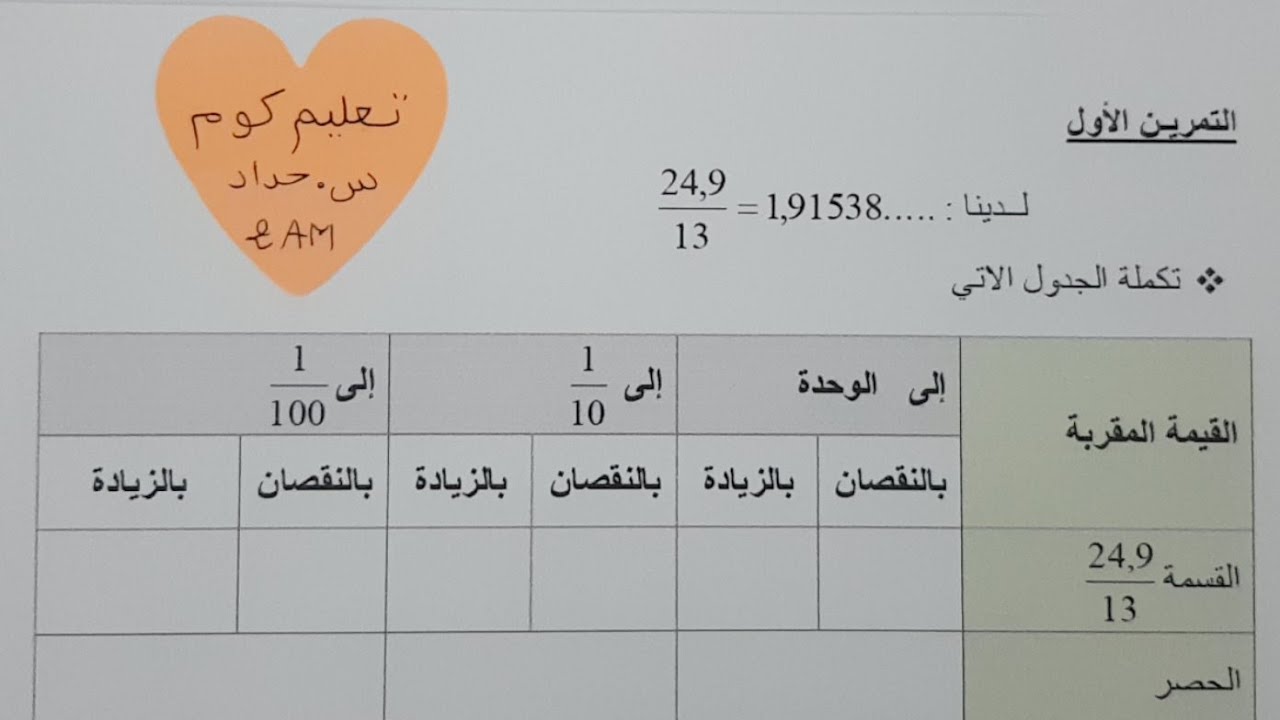 تعليم كوم
س. حداد
2AM
التمرين الأول
لدينا : 24,9/13 = 1,91538.....
❖ تكملة الجدول الاتي
القيمة المقربة
إلى الوحدة
إلى 1/10
إلى 1/100
بالنقصان بالزيادة بالنقصان بالزيادة بالنقصان بالزيادة
القسمة 24,9/13
الحصر